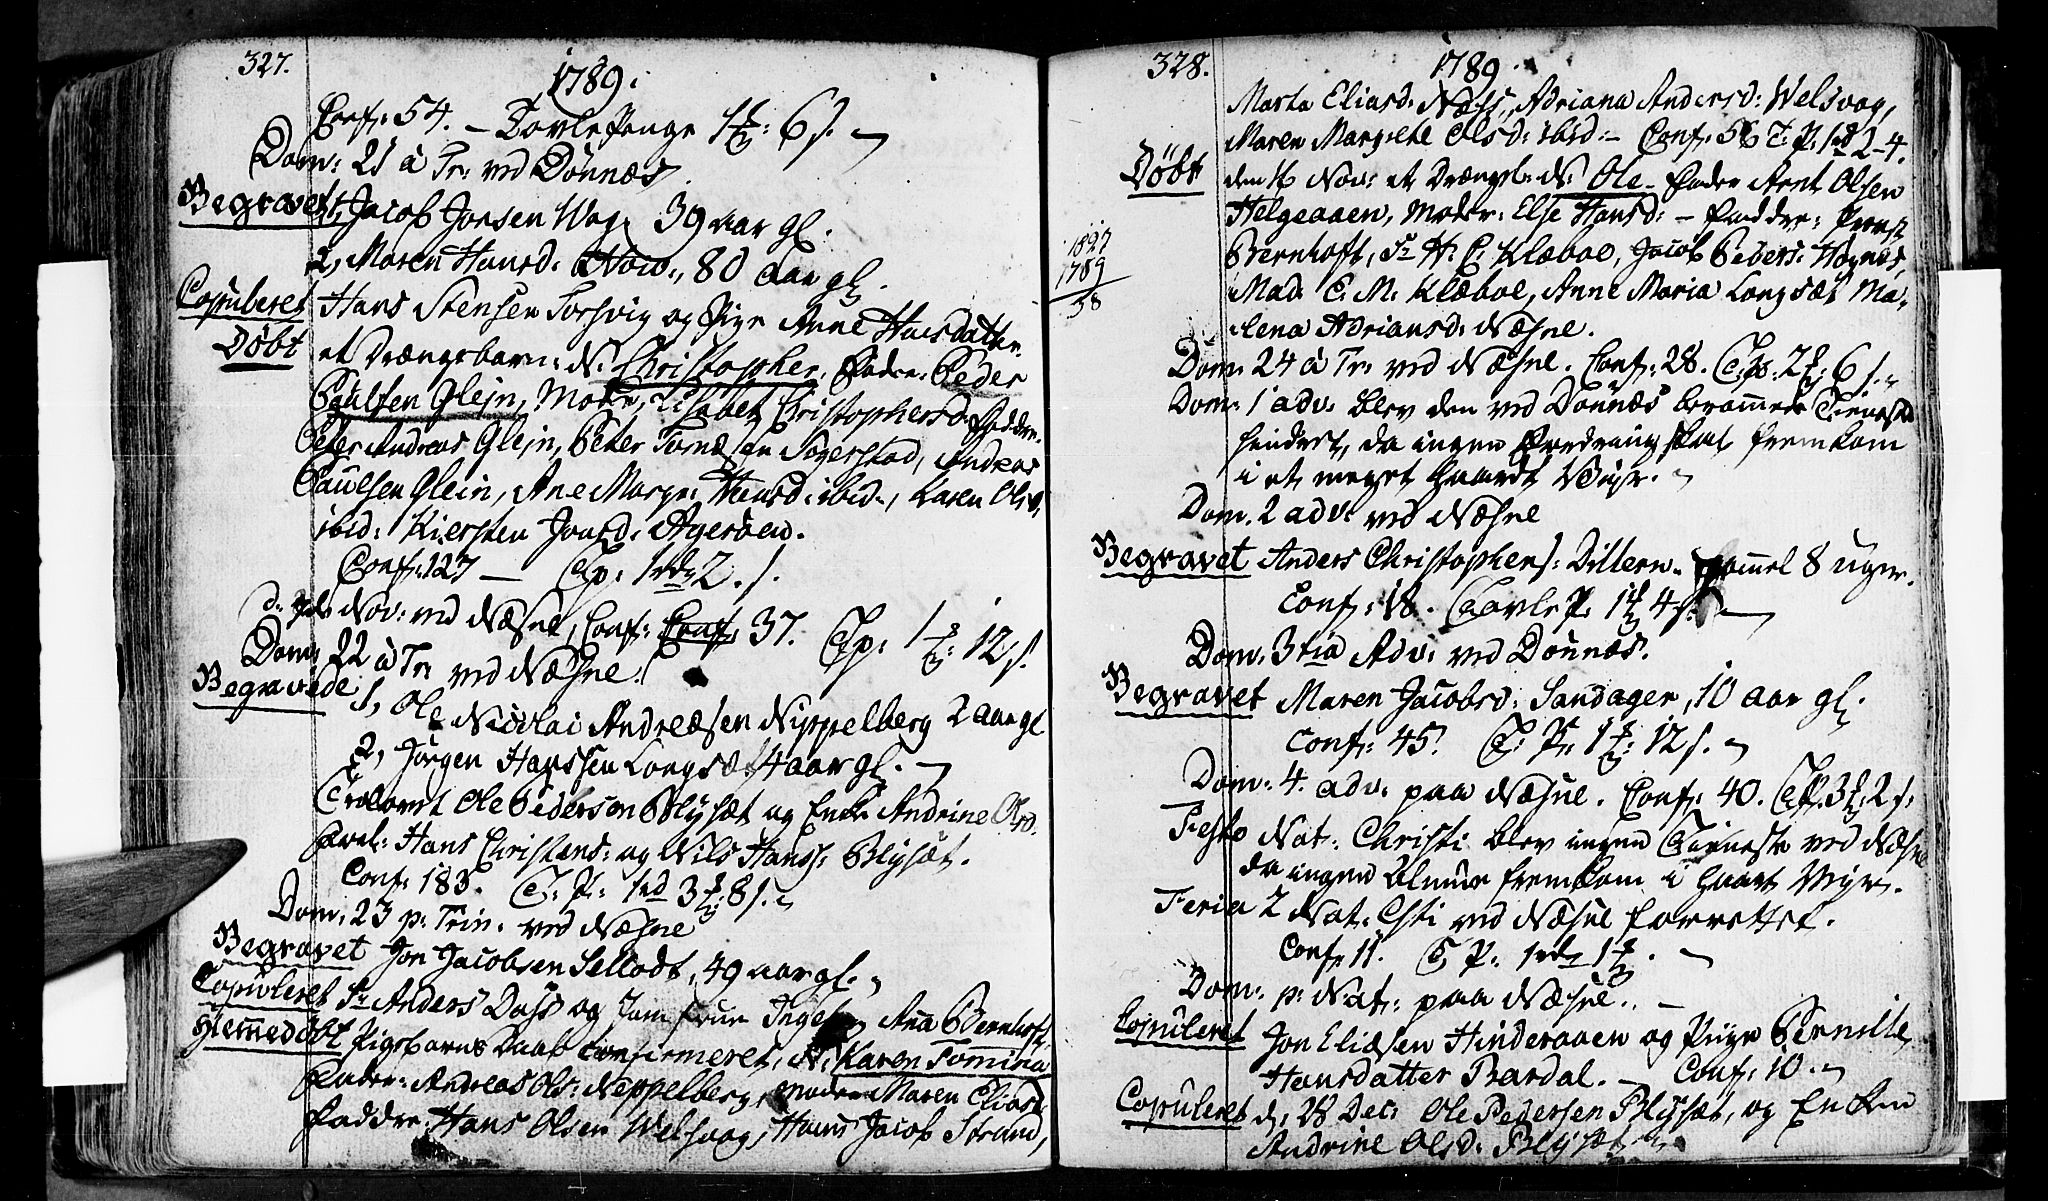 327.
1789.
Conf: 54. – Tavlepenge 1 ℔: 6 s.
Dom: 21 à Tr: ved Dönnæs.
Begravet, Jacob Jonsen Wog, 39 aar gl.
2, Maren Hansd: 80 aar gl.
Copuleret Hans Stensen Forsvig og Pige Anne Hansdatter.
Döbt et Drængebarn: N: Christopher. Fader: Peder
Paulsen Glejn, Moder, Elisabet Christophersd: Faddre:
Peter Andreas Glejn, Peter Tomæsen Sogerstad, Andreas
Paulsen Glein, Ane Margr: Hansd: ibid:, Karen Olsd:
ibid: Kiersten Jonsd: Ageröen.
Conf: 127 – T.p: 1 rd 2 s.
d: Nov: ved Næsne, Conf: 37. T.p: 1 ℔: 12 s.
Dom: 22 à Tr: ved Næsne.
Begravede 1, Ole Nicolai Andreæsen Nyppelberg 2 aar gl
2, Jörgen Hanssen Longsæt 4 aar gl.
Trolovet Ole Pedersen Blysæt og Enke Andrine Olsd.
Cavt: Hans Christens: og Nils Hanss: Blysæt.
Conf: 183. T.P: 1 rd 3 ℔: 8 s.
Dom: 23 p: Trin: ved Næsne
Begravet Jon Jacobsen Selladt, 49 aar gl.
Copuleret Sr Anders Dass og Jomfrue Ana Bernhoft.
Hiemedöbt Pigebarns Daab confirmeret, N: Karen Tomina
Fader: Andreas Ols: Neppelberg, Moder Maren Eliasd:
Faddre, Hans Olsen Welsvag, Hans Jacob Strand,
328.
1789.
Marta Eliasd: Næss, Adriana Andersd: Welsvag,
Maren Margrete Olsd: ibid: – Conf: 56 T.P. 1 rd 2–4.
Döbt den 16 Nov: et Drængeb: N: Ole – Fader Arnt Olsen
Helgeaaen, Moder: Else Hansd: – Faddre: Provst
1827
1789
38
Bernhoft, Sr H: C: Klæboe, Jacob Peders: Hognæs,
Mad. C. M: Klæboe, Anne Maria Longsæt, Ma-
lena Adriansd: Næsne.
Dom: 24 à Tr: ved Næsne. Conf: 28. T.p: 2 ℔: 6 s.
Dom: 1 adv: blev den ved Dönnæs berammede Tieneste
hindret, da ingen fremkom
i et meget haardt Vejr.
Dom. 2 adv: ved Næsne
Begravet Anders Christophers: Dillern – gammel 8 uger.
Conf: 18. Tavle P: 1 ℔ 4 s.
Dom: 3tia Adv: ved Dönnæs.
Begravet Maren Jacobsd: Sandager, 10 aar gl.
Conf: 45. T: P: 1 ℔: 12 s.
Dom: 4. adv: paa Næsne. Conf: 40. T.P. 3 ℔: 2 s:
Festo Nat: Christi blev ingen Tieneste ved Næsne
da ingen Almue fremkom i haart Vejr.
Feria 2 Nat: Csti ved Næsne forrettet.
Conf: 11. T P: 1 rd 1 ℔.
Dom: p: Nat: paa Næsne.
Copuleret Jon Eliæsen Hinderaaen og Pige Pernille
Hansdatter Bardal. – Conf: 10.
Copuleret d: 28 Dec: Ole Pedersen Blysæt, og Enken
Andrine Olsd: Blysæt